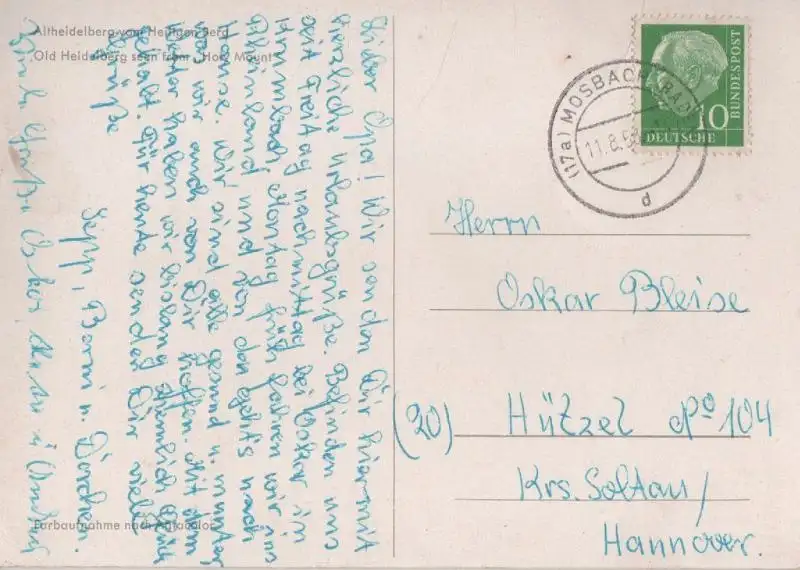 Altheidelberg vom Heiligen Berg
Old Heidelberg seen from „Holy Mount“
Lieber Opa! Wir senden Dir hiermit
herzliche Urlaubsgrüße. Befinden uns
seit Freitag nachmittag bei Oskar in
Montag früh fahren wir ins
Rheinland und von dort gehts nach
Hause. Wir sind alle gesund u. munter
was wir auch von Dir hoffen. Mit dem
Wetter haben wir bislang ziemlich Glück
gehabt. Für heute senden Dir viele
Grüße
Sepp, Berni u. Dorchen.
Oskar,
Farbaufnahme nach Agfacolor
DEUTSCHE BUNDESPOST
10
(17a) MOSBACH (BADEN)
11.8.5
d
Herrn
Oskar Bleise
(20) Hützel No 104
Krs. Soltau/
Hannover.